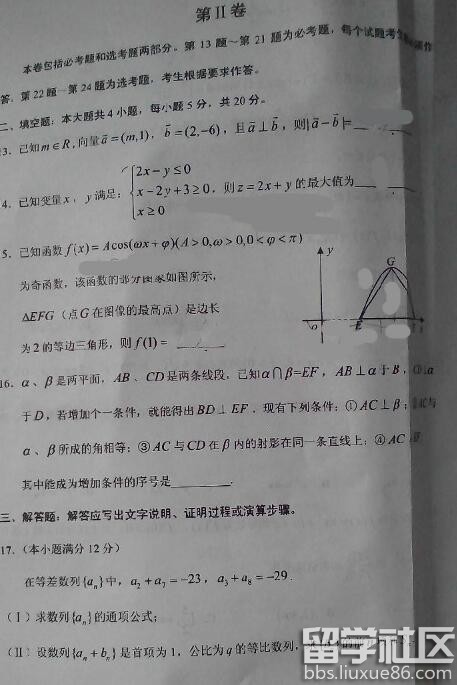 第Ⅱ卷
本卷包括必考题和选考题两部分。第13题~第21题为必考题，每个试题考
答，第22题~第24题为选考题，考生根据要求作答。
二、填空题：本大题共4小题，每小题5分，共20分。
3. 已知m∈R,向量a⃗=(m,1)，b⃗=(2,-6)，且a⃗⊥b⃗，则|a⃗-b⃗|=
4. 已知变量x，y满足：{2x-y≤0
x-2y+3≥0，则z=2x+y的最大值为
x≥0
5. 已知函数f(x)=Acos(ωx+φ)(A>0,ω>0,0<φ<π)
为奇函数，该函数的部分图象如图所示，
ΔEFG（点G在图像的最高点）是边长
为2的等边三角形，则f(1)=
y
G
o
E
16. α、β是两平面，AB、CD是两条线段，已知α∩β=EF，AB⊥α于B，
于D，若增加个一条件，就能得出BD⊥EF．现有下列条件：①AC⊥β；与
α、β所成的角相等；③AC与CD在β内的射影在同一条直线上；④AC
其中能成为增加条件的序号是
三、解答题：解答应写出文字说明、证明过程或演算步骤。
17.（本小题满分12分）
在等差数列{aₙ}中，a₂+a₇=-23，a₃+a₈=-29．
（Ⅰ）求数列{aₙ}的通项公式；
（Ⅱ）设数列{aₙ+bₙ}是首项为1，公比为q的等比数列，
留学社区
bbs.liuxue86.com